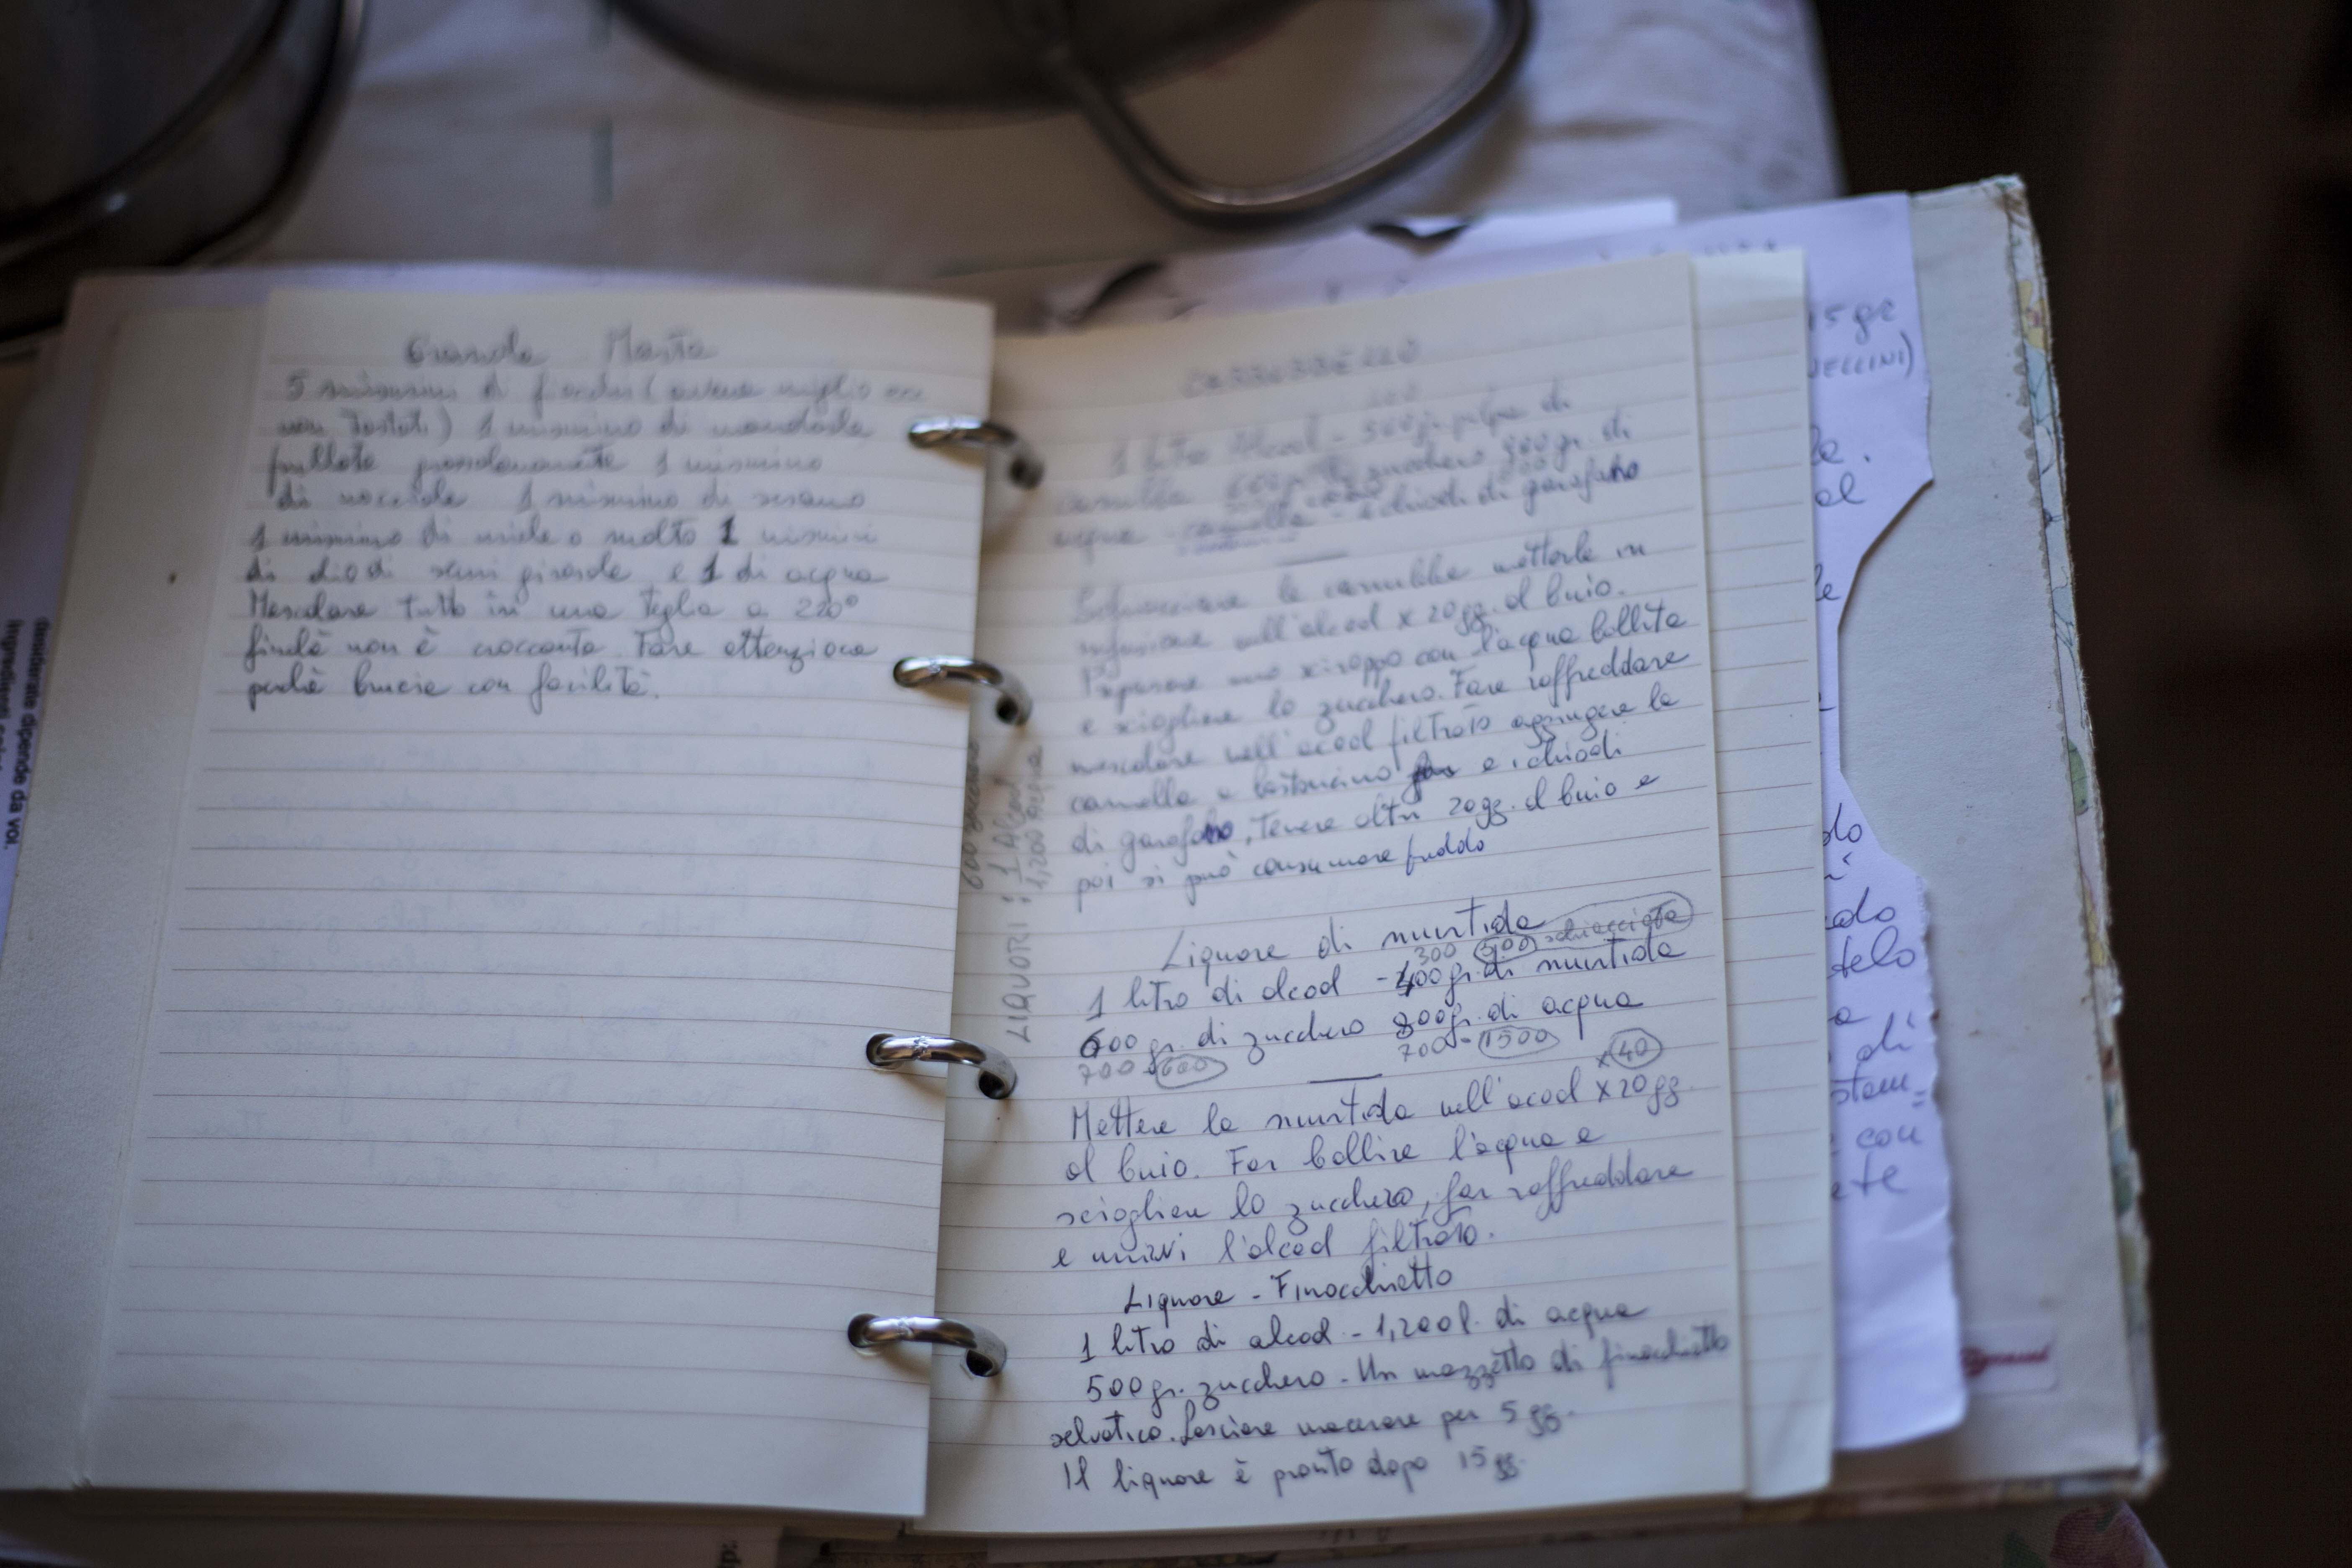 Granola Marta
5 misurini di fiocchi (avena miglio ecc
non tostati) 1 misurino di mandorle
frullate grossolanamente 1 misurino
di nocciole 1 misurino di sesamo
1 misurino di miele o malto 1 misurini
di olio di semi girasole e 1 di acqua
Mescolare tutto in una teglia a 220°
finchè non è croccante. Fare attenzione
perchè brucia con facilità.
CARRUBELLO
1 litro Alcool - 500 gr. polpa di
carrubbe 600 gr. zucchero 900 gr. di
acqua - cannella - chiodi di garofano
le carrubbe metterle in
infusione nell'alcool x 20 gg. al buio.
Preparare uno sciroppo con l'acqua bollita
e sciogliere lo zucchero. Fare raffreddare
mescolare nell'acool filtrato aggiugere la
cannella a bastoncino e i chiodi
di garofano, tenere altri 20 gg. al buio e
poi si può consumare freddo
LIQUORI : 1 Alcool
1,200 acqua
600 zucchero
Liquore di murtida
300 500 schiacciata
1 litro di alcool - 400 gr. di murtida
600 gr. di zucchero 800 gr. di acqua
700 - 600 700 - 1500
x 40
Mettere la murtida nell'acool x 20 gg.
al buio. Far bollire l'acqua e
sciogliere lo zucchero, far raffreddare
e unirvi l'alcool filtrato.
Liquore - Finocchietto
1 litro di alcool - 1,200 l. di acqua
500 gr. zucchero - Un mazzetto di finocchietto
selvatico. Lasciare macerare per 5 gg.
Il liquore è pronto dopo 15 gg.
15 gr
con
dipende da voi.